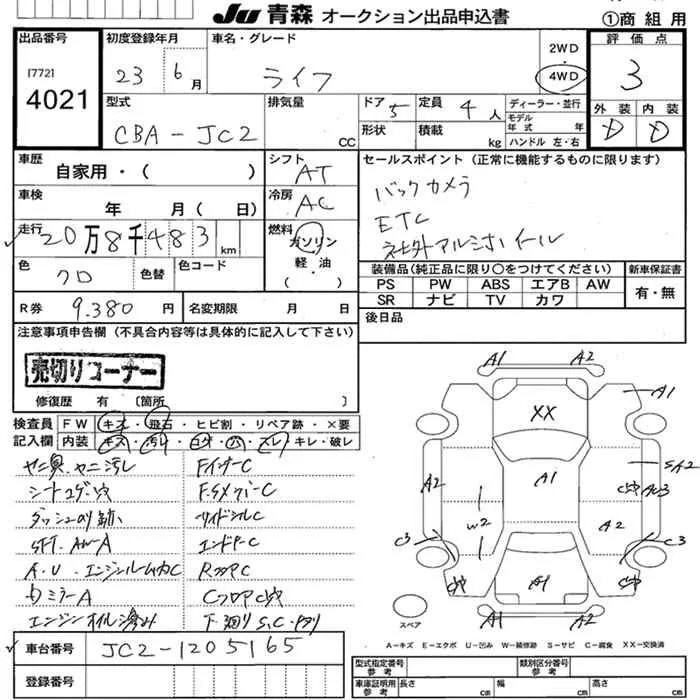 JU 青森 オークション出品申込書
①商組用
出品番号
[772]
4021
初度登録年月
23年 6月
車名・グレード
ライフ
2WD
4WD
評価点
3
型式
CBA-JC2
排気量
CC
ドア 5
定員 4人
形状
積載
kg
ディーラー・並行
モデル年式 年
ハンドル 左・右
外装 内装
D D
車歴
自家用・( )
シフト
AT
セールスポイント(正常に機能するものに限ります)
バックカメラ
ETC
社外アルミホイール
車検
年 月( 日)
冷房
AC
走行
20万8千483km
燃料
ガソリン
軽・油
( )
色
クロ
色替
色コード
装備品(純正品に限り○をつけてください)
新車保証書
PS PW ABS エアB AW
SR ナビ TV カワ
有・無
R券
9.380円
名変期限 月 日
後日品
注意事項申告欄(不具合内容等は具体的に記入して下さい)
売切りコーナー
修復歴 有 〔箇所 〕
検査員記入欄
FW キズ・飛石・ヒビ割・リペア跡・×要
内装 キズ・汚レ・コゲ・穴・スレ・キレ・破レ
ヤニ臭、ヤニ汚レ
シートコゲ・穴
F.インナーC
サイドシルC
エンドPC
エンジンオイル滲み
A1 A2
A1
XX
A1
A2
A2
W2
C3
C3
A1
A1 A2
スペア
A=キズ E=エクボ U=凹み W=補修跡 S=サビ C=腐食 XX=交換済
車台番号
JC2-1205165
登録番号
型式指定番号
参考
類別区分番号
参考
車庫証明用
参考
長さ cm
幅 cm
高さ cm